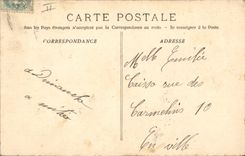 CARTE POSTALE
Tous les Pays étrangers n'acceptent pas la Correspondance au recto - Se renseigner à la Poste
CORRESPONDANCE
ADRESSE
a Dimanche
a midi
Melle Emilie
rue des
10
En ville